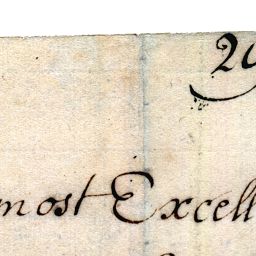 29
most Excell